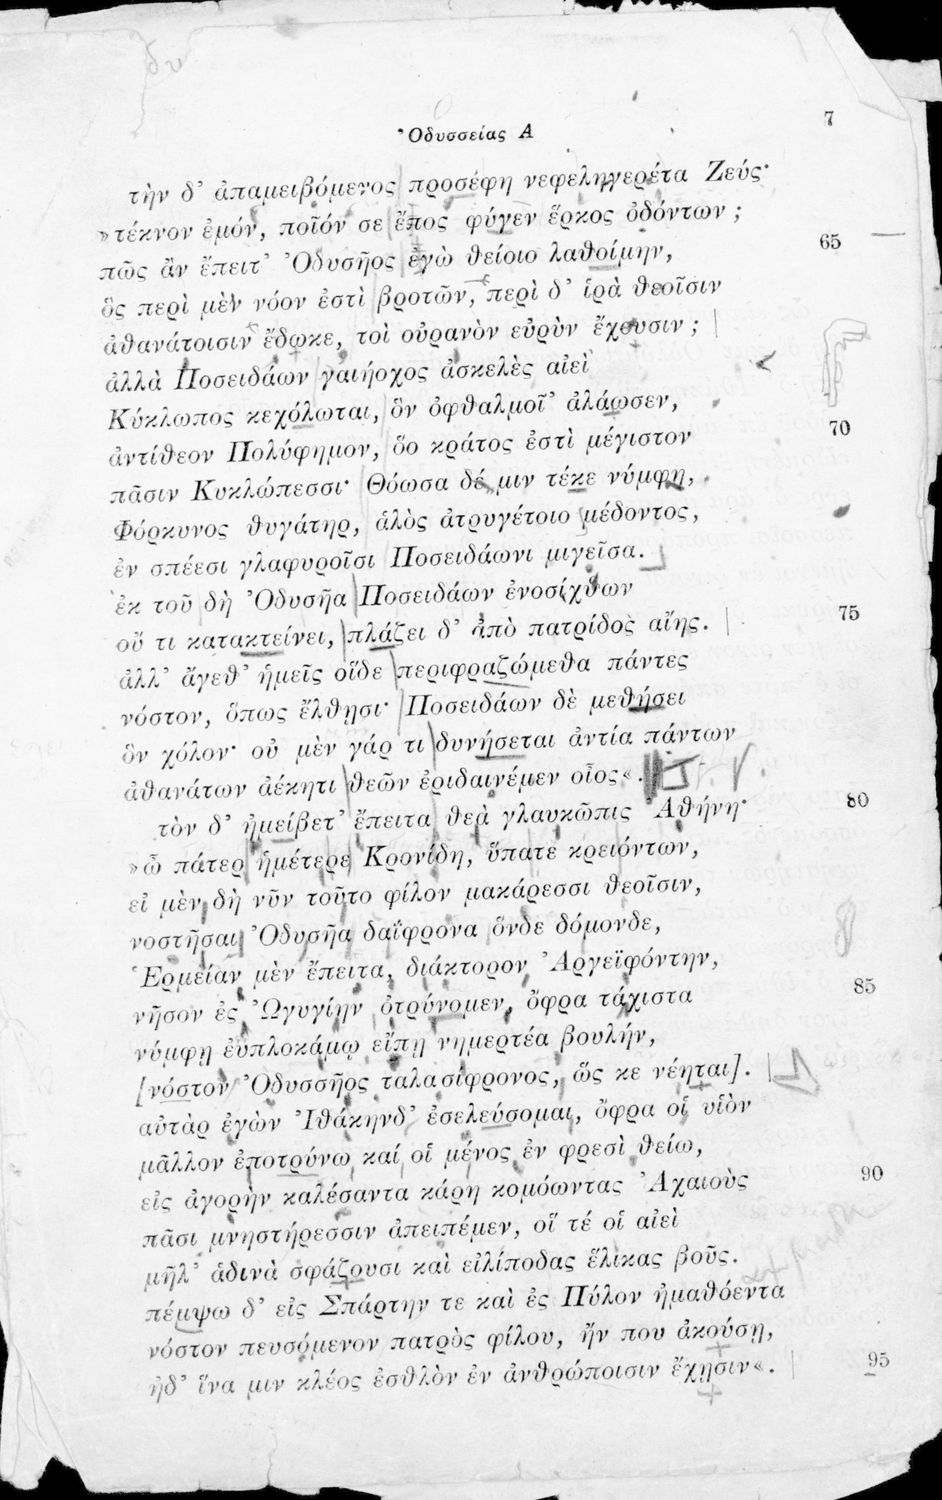 Ὀδυσσείας Α
7
τὴν δ' ἀπαμειβόμενος προσέφη νεφεληγερέτα Ζεύς·
»τέκνον ἐμόν, ποῖόν σε ἔπος φύγεν ἕρκος ὀδόντων;
πῶς ἂν ἔπειτ' Ὀδυσῆος ἐγὼ θείοιο λαθοίμην, 65
ὃς περὶ μὲν νόον ἐστὶ βροτῶν, περὶ δ' ἱρὰ θεοῖσιν
ἀθανάτοισιν ἔδωκε, τοὶ οὐρανὸν εὐρὺν ἔχουσιν;
ἀλλὰ Ποσειδάων γαιήοχος ἀσκελὲς αἰεὶ
Κύκλωπος κεχόλωται, ὃν ὀφθαλμοῦ ἀλάωσεν,
ἀντίθεον Πολύφημον, ὅο κράτος ἐστὶ μέγιστον 70
πᾶσιν Κυκλώπεσσι· Θόωσα δέ μιν τέκε νύμφη,
Φόρκυνος θυγάτηρ, ἁλὸς ἀτρυγέτοιο μέδοντος,
ἐν σπέεσι γλαφυροῖσι Ποσειδάωνι μιγεῖσα.
ἐκ τοῦ δὴ Ὀδυσῆα Ποσειδάων ἐνοσίχθων
οὔ τι κατακτείνει, πλάζει δ' ἀπὸ πατρίδος αἴης. 75
ἀλλ' ἄγεθ' ἡμεῖς οἵδε περιφραζώμεθα πάντες
νόστον, ὅπως ἔλθησι· Ποσειδάων δὲ μεθήσει
ὃν χόλον· οὐ μὲν γάρ τι δυνήσεται ἀντία πάντων
ἀθανάτων ἀέκητι θεῶν ἐριδαινέμεν οἶος«.
τὸν δ' ἠμείβετ' ἔπειτα θεὰ γλαυκῶπις Ἀθήνη· 80
»ὦ πάτερ ἡμέτερε Κρονίδη, ὕπατε κρειόντων,
εἰ μὲν δὴ νῦν τοῦτο φίλον μακάρεσσι θεοῖσιν,
νοστῆσαι Ὀδυσῆα δαΐφρονα ὅνδε δόμονδε,
Ἑρμείαν μὲν ἔπειτα, διάκτορον Ἀργεϊφόντην,
νῆσον ἐς Ὠγυγίην ὀτρύνομεν, ὄφρα τάχιστα 85
νύμφῃ ἐυπλοκάμῳ εἴπῃ νημερτέα βουλήν,
[νόστον Ὀδυσσῆος ταλασίφρονος, ὥς κε νέηται].
αὐτὰρ ἐγὼν Ἰθάκηνδ' ἐσελεύσομαι, ὄφρα οἱ υἱὸν
μᾶλλον ἐποτρύνω καί οἱ μένος ἐν φρεσὶ θείω,
εἰς ἀγορὴν καλέσαντα κάρη κομόωντας Ἀχαιοὺς 90
πᾶσι μνηστήρεσσιν ἀπειπέμεν, οἵ τέ οἱ αἰεὶ
μῆλ' ἁδινὰ σφάζουσι καὶ εἰλίποδας ἕλικας βοῦς.
πέμψω δ' εἰς Σπάρτην τε καὶ ἐς Πύλον ἠμαθόεντα
νόστον πευσόμενον πατρὸς φίλου, ἤν που ἀκούσῃ,
ἠδ' ἵνα μιν κλέος ἐσθλὸν ἐν ἀνθρώποισιν ἔχῃσιν«. 95